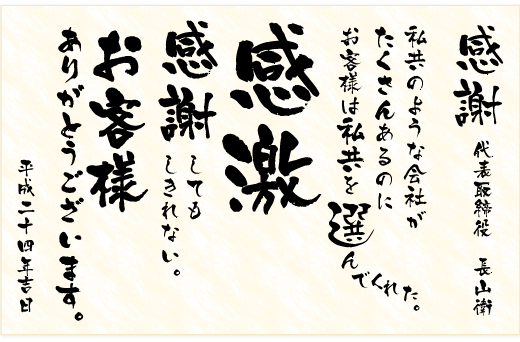 感謝 代表取締役 長山衛
私共のような会社が
たくさんあるのに
お客様は私共を選んでくれた。
感激
感謝してもしきれない。
お客様
ありがとうございます。
平成二十四年吉日